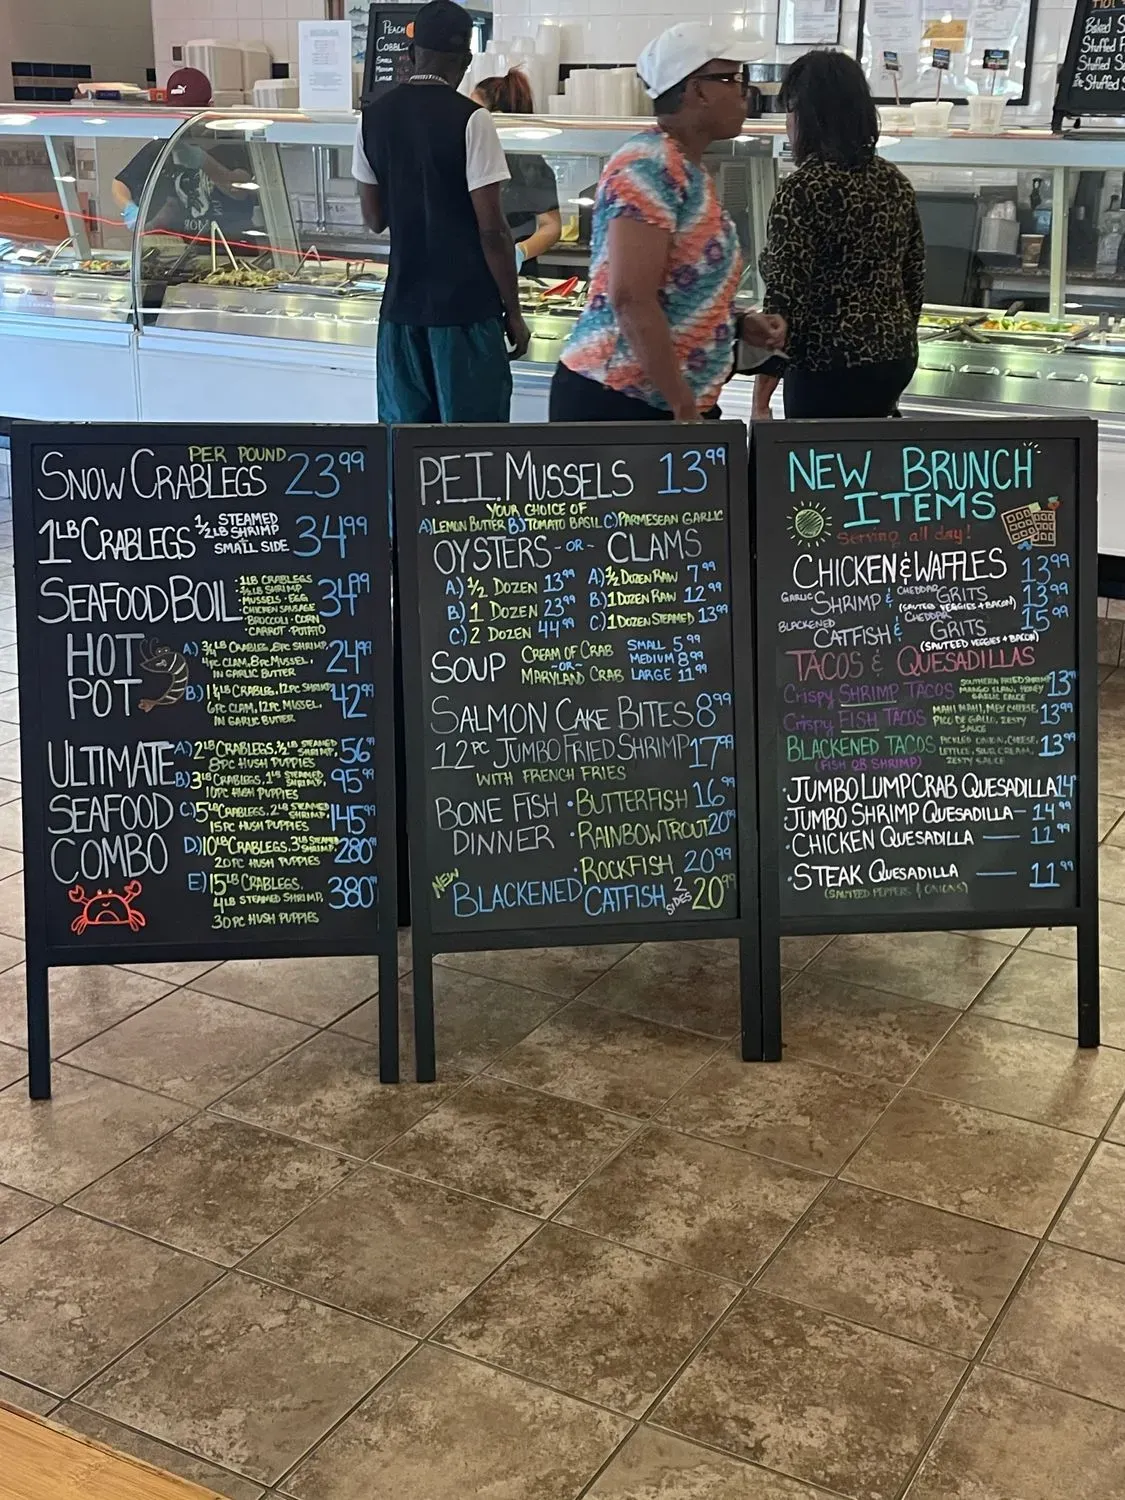 PEACH
COBBL
SMALL
MEDIUM
LARGE
HOT
BAKED S
STUFFED F
STUFFED S
STUFFED S
PER POUND
SNOW CRABLEGS 23.99
1LB CRABLEGS 1/2LB STEAMED SHRIMP SMALL SIDE 34.99
SEAFOOD BOIL 34.99
· 1LB CRABLEGS
· 1/2LB SHRIMP
· MUSSELS · EGG
· CHICKEN SAUSAGE
· BROCCOLI · CORN
· CARROT · POTATO
HOT POT
A) 3/4LB CRABLEG, 8PC SHRIMP, 24.99
4PC CLAM, 8PC MUSSEL,
IN GARLIC BUTTER
B) 1 1/4LB CRABLEG, 12PC SHRIMP 42.99
6PC CLAM, 12PC MUSSEL,
IN GARLIC BUTTER
ULTIMATE SEAFOOD COMBO
A) 2LB CRABLEGS, 1/2LB STEAMED SHRIMP, 56.99
8PC HUSH PUPPIES
B) 3LB CRABLEGS, 1LB STEAMED SHRIMP, 95.99
10PC HUSH PUPPIES
C) 5LB CRABLEGS, 2LB STEAMED SHRIMP, 145.99
15PC HUSH PUPPIES
D) 10LB CRABLEGS, 3LB STEAMED SHRIMP, 280
20PC HUSH PUPPIES
E) 15LB CRABLEGS, 380
4LB STEAMED SHRIMP,
30PC HUSH PUPPIES
P.E.I. MUSSELS 13.99
YOUR CHOICE OF
A) LEMON BUTTER B) TOMATO BASIL C) PARMESEAN GARLIC
OYSTERS - OR - CLAMS
A.) 1/2 DOZEN 13.99 A.) 1/2 DOZEN RAW 7.99
B.) 1 DOZEN 23.99 B.) 1 DOZEN RAW 12.99
C.) 2 DOZEN 44.99 C.) 1 DOZEN STEAMED 13.99
SOUP CREAM OF CRAB SMALL 5.99
-OR- MEDIUM 8.99
MARYLAND CRAB LARGE 11.99
SALMON CAKE BITES 8.99
12PC JUMBO FRIED SHRIMP 17.99
WITH FRENCH FRIES
BONE FISH DINNER
· BUTTERFISH 16.99
· RAINBOW TROUT 20.99
· ROCKFISH 20.99
NEW BLACKENED CATFISH 2 SIDES 20.99
NEW BRUNCH
ITEMS
Serving all day!
CHICKEN & WAFFLES 13.99
GARLIC SHRIMP & CHEDDAR GRITS 13.99
(SAUTEED VEGGIES + BACON)
BLACKENED CATFISH & CHEDDAR GRITS 15.99
(SAUTEED VEGGIES + BACON)
TACOS & QUESADILLAS
Crispy SHRIMP TACOS SOUTHERN FRIED SHRIMP MANGO SLAW, HONEY GARLIC SAUCE 13
Crispy FISH TACOS MAHI MAHI, MEX CHEESE, PICO DE GALLO, ZESTY SAUCE 13.99
BLACKENED TACOS PICKLED ONION, CHEESE, LETTICE, SOUR CREAM, ZESTY SAUCE 13.99
(FISH OR SHRIMP)
· JUMBO LUMP CRAB QUESADILLA 14.99
· JUMBO SHRIMP QUESADILLA - 14.99
· CHICKEN QUESADILLA — 11.99
· STEAK QUESADILLA — 11.99
(SAUTEED PEPPERS & ONIONS)